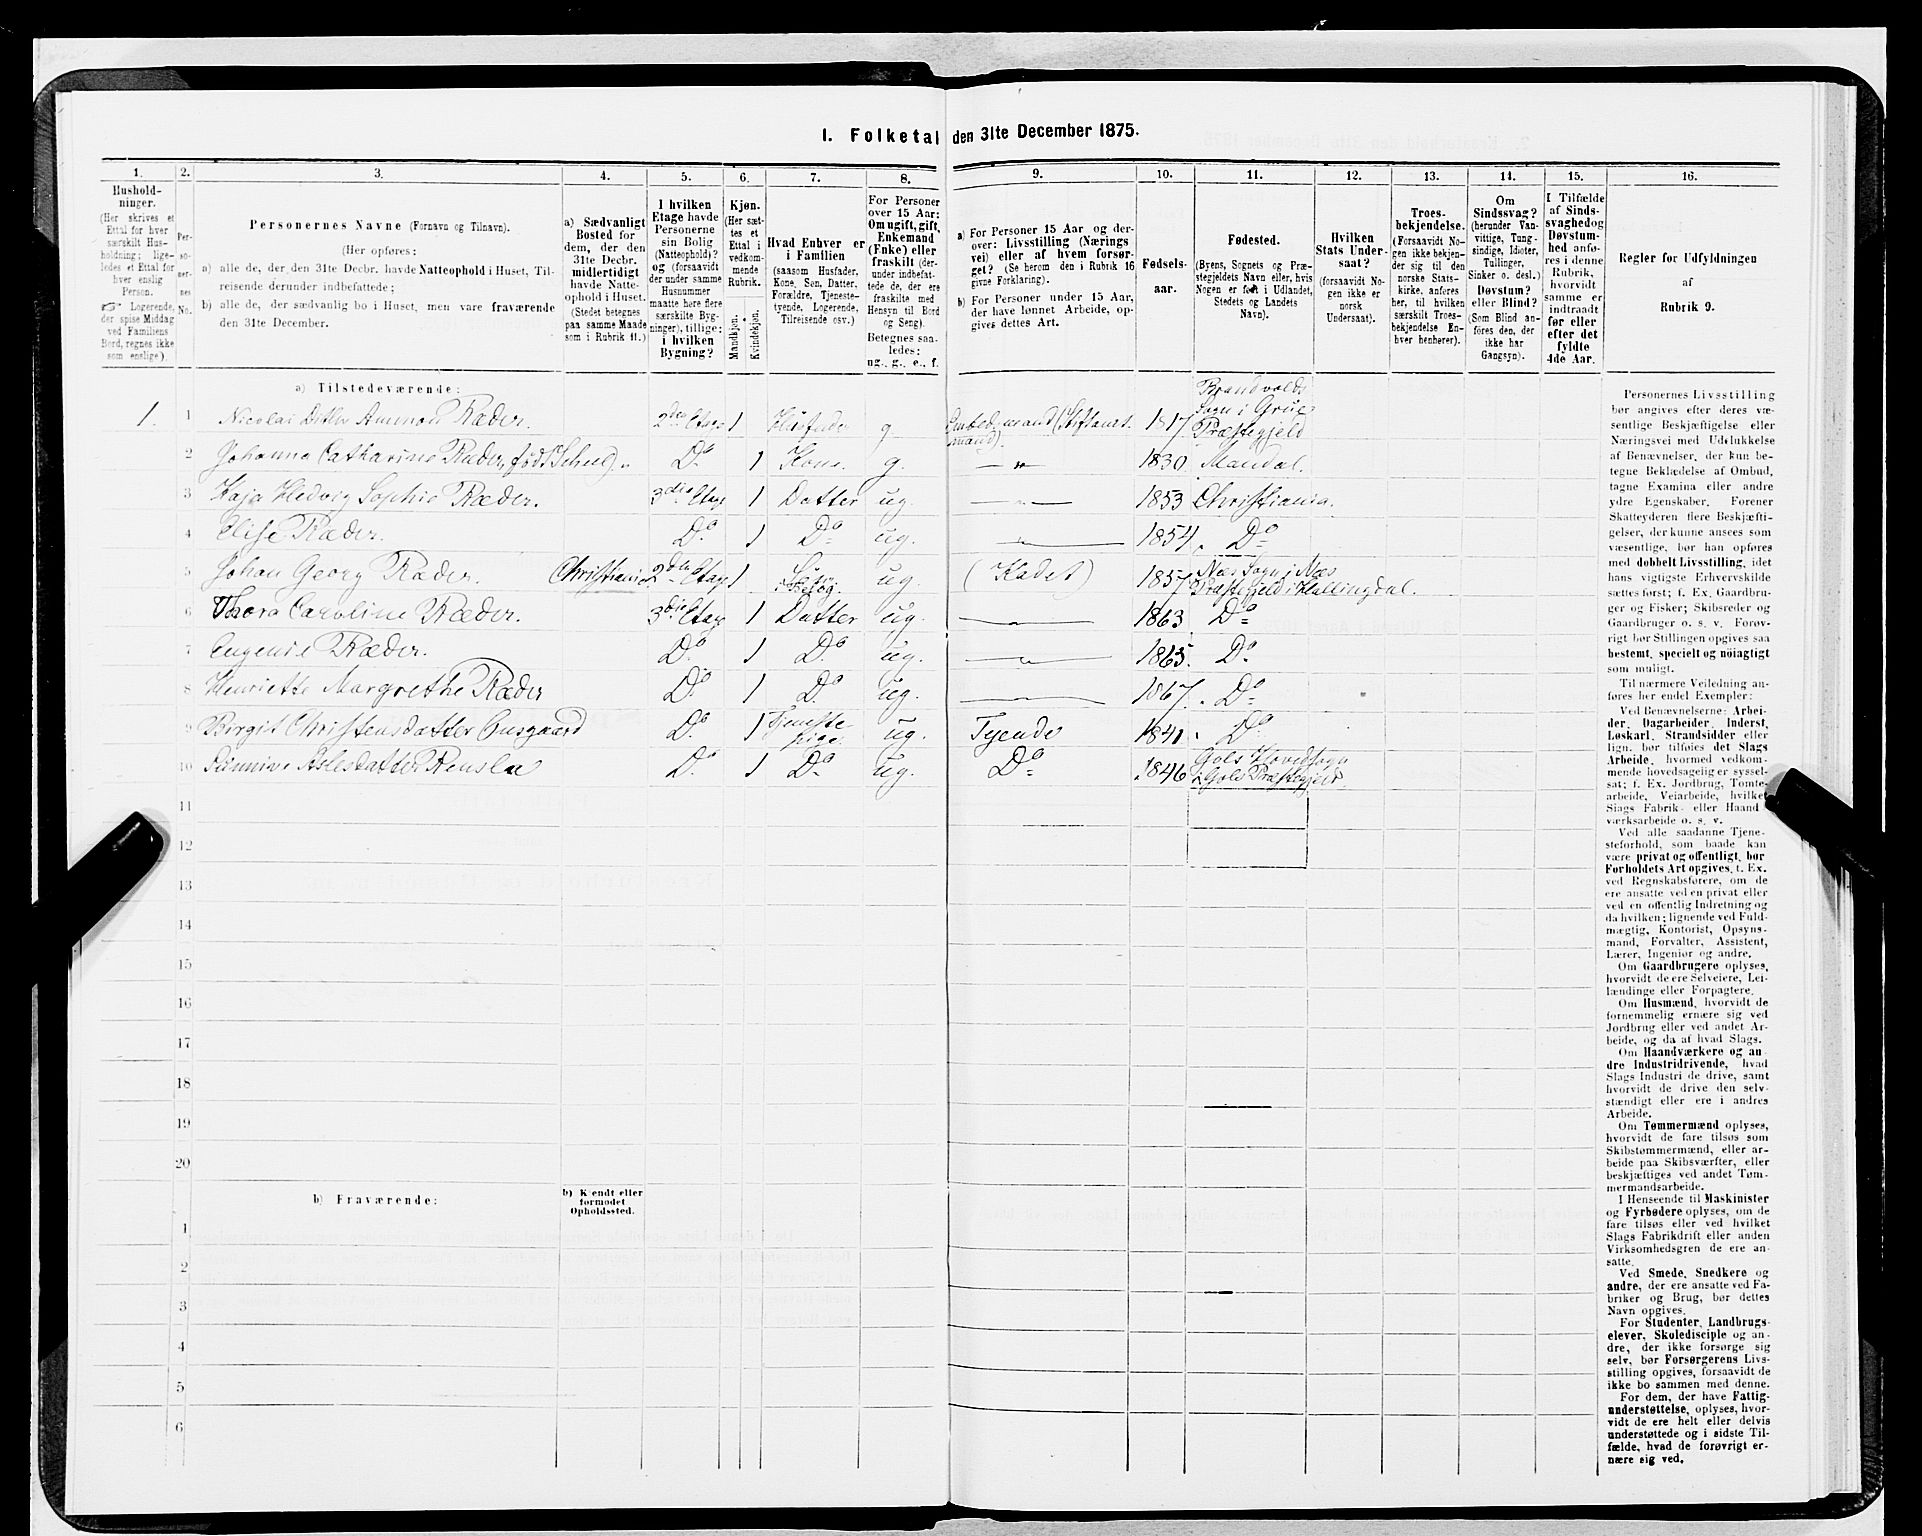 I. Folketal den 31te December 1875.
1.
Hushold-
ninger.
(Her skrives et
Ettal for hver
særskilt Hus-
holdning; lige-
ledes et Ettal for
hver enslig
Person.
☞ Logerende,
der spise Middag
ved Familiens
Bord, regnes ikke
som enslige).
2.
Per-
so-
ner-
nes
No.
3.
Personernes Navne (Fornavn og Tilnavn).
(Her opføres:
a) alle de, der den 31te Decbr. havde Natteophold i Huset, Til-
reisende derunder indbefattede;
b) alle de, der sædvanlig bo i Huset, men vare fraværende
den 31te December.
4.
a) Sædvanligt
Bosted for
dem, der den
31te Decbr.
midlertidigt
havde Natte-
ophold i Huset.
(Stedet betegnes
paa samme Maade
som i Rubrik 11.)
5.
I hvilken
Etage havde
Personerne
sin Bolig
(Natteophold)?
og (forsaavidt
der under samme
Husnummer
maatte høre flere
særskilte Byg-
ninger), tillige:
i hvilken
Bygning?
6.
Kjøn.
(Her sæt-
tes et
Ettal i
vedkom-
mende
Rubrik.
Mandkjøn.
Kvindekjøn.
7.
Hvad Enhver er
i Familien
(saasom Husfader,
Kone, Søn, Datter,
Forældre, Tjeneste-
tyende, Logerende,
Tilreisende osv.)
8.
For Personer
over 15 Aar:
Om ugift, gift,
Enkemand
(Enke) eller
fraskilt (der-
under indbefat-
tede de, der ere
fraskilte med
Hensyn til Bord
og Seng).
Betegnes saa-
ledes:
ug., g., e., f.
9.
a) For Personer 15 Aar og der-
over: Livsstilling (Nærings
vei) eller af hvem forsør-
get? (Se herom den i Rubrik 16
givne Forklaring).
b) For Personer under 15 Aar,
der have lønnet Arbeide, op-
gives dettes Art.
10.
Fødsels-
aar.
11.
Fødested.
(Byens, Sognets og Præ-
stegjeldets Navn eller, hvis
Nogen er født i Udlandet,
Stedets og Landets
Navn).
12.
Hvilken
Stats Under-
saat?
(forsaavidt No-
gen ikke er
norsk
Undersaat).
13.
Troes-
bekjendelse.
(Forsaavidt No-
gen ikke bekjen-
der sig til den
norske Stats-
kirke, anføres
her, til hvilken
særskilt Troes-
bekjendelse En-
hver henhører).
14.
Om
Sindssvag?
(herunder Van-
vittige, Tung-
sindige, Idioter,
Tullinger,
Sinker o. desl.)
Døvstum?
eller Blind?
(Som Blind an-
føres den, der
ikke har
Gangsyn).
15.
I Tilfælde
af Sinds-
svaghed og
Døvstum-
hed anfø-
res i denne
Rubrik,
hvorvidt
samme er
indtraadt
før eller
efter det
fyldte
4de Aar.
16.
Regler for Udfyldningen
af
Rubrik 9.
a) Tilstedeværende:
1. 1 Nicolai Ditlev Ammon Ræder. 2den Etage 1 Husfader g Embedsmand (Stiftamt- 1817. Brandvolds
mand). Sogn i Grue
Præstegjeld
2 Johanne Catharine Ræder, født Schul). Do 1 Kone. g. — " — 1830 Mandal.
3 Kaja Hedvig Sophie Ræder. 3die Etage 1 Datter ug. — " — 1853 Christiania.
4 Elise Ræder. Do 1 Do ug. — " — 1854. Do
5 Johan Georg Ræder. Christiania 2den Etage 1 Søn, ug. (Kadet) 1857 Næs Sogn i Næs
Besøg. Præstegjeld i Hallingdal.
6 Thora Caroline Ræder. 3die Etage 1 Datter ug. — " — 1863 Do
7 Eugenie Ræder. Do 1 Do ug. — " — 1865. Do
8 Henriette Margrethe Ræder Do 1 Do ug. — " — 1867. Do
9 Birgit Christensdatter Do 1 Tjeneste ug. Tyende 1841. Do
pige.
10 Aslesdatter Do 1 Do ug. Do 1846 Gols Hovedsogn
i Gols Præstegjeld.
11
12
13
14
15
16
17
18
19
20
b) Fraværende:
b) Kendt eller
formodet
Opholdssted.
1
2
3
4
5
6
Personernes Livsstilling
bør angives efter deres væ-
sentlige Beskjæftigelse eller
Næringsvei med Udslukkelse
af Benævnelser, der kun be-
tegne Beklædelse af Ombud,
tagne Examina eller andre
ydre Egenskaber. Forener
Skatteyderen flere Beskjæfti-
gelser, der kunne ansees som
væsentlige, bør han opføres
med dobbelt Livsstilling, idet
hans vigtigste Erhvervskilde
sættes forst; f. Ex. Gaardbru-
ger og Fisker; Skibsreder og
Gaardbruger o. s. v. Forøv-
rigt bør Stillingen opgives saa
bestemt, specielt og nöiagtigt
som muligt.
Til nærmere Veiledning an-
føres her endel Exempler:
Ved Benævnelserne: Arbei-
der, Dagarbeider, Inderst,
Løskarl, Strandsidder eller
lign. bør tilföies det Slags
Arbeide, hvormed vedkom-
mende hovedsagelig er syssel-
sat; f. Ex. Jordbrug, Tomte-
arbeide, Veiarbeide, hvilket
Slags Fabrik- eller Haand-
værksarbeide o. s. v.
Ved alle saadanne Tjene-
steforhold, som baade kan
være privat og offentligt, bør
Forholdets Art opgives, t. Ex.
ved Regnskabsførere, om de
ere ansatte ved en privat eller
ved en offentlig Indretning og
da hvilken; lignende ved Fuld-
mægtig, Kontorist, Opsyns-
mand, Forvalter, Assistent,
Lærer, Ingeniør og andre.
Om Gaardbrugere oplyses,
hvorvidt de ere Selveiere, Lei-
lændinge eller Forpagtere.
Om Husmænd, hvorvidt de
fornemmelig ernære sig ved
Jordbrug eller ved andet Ar-
beide, og da af hvad Slags.
Om Haandværkere og an-
dre Industridrivende, hvad
Slags Industri de drive, samt
hvorvidt de drive den selv-
stændigt eller ere i andres
Arbeide.
Om Tømmermænd oplyses,
hvorvidt de fare tilsøs som
Skibstømmermænd, eller ar-
beide paa Skibsværfter, eller
beskjæftiges ved andet Tøm-
mermandsarbeide.
I Henseende til Maskinister
og Fyrbødere oplyses, om de
fare tilsøs eller ved hvilket
Slags Fabrikdrift eller anden
Virksomhedsgren de ere an-
satte.
Ved Smede, Snedkere og
andre, der ere ansatte ved Fa-
briker og Brug, bør dettes
Navn opgives.
For Studenter, Landbrugs-
elever, Skoledisciple og an-
dre, der ikke forsørge sig
selv, bør Forsørgerens Livs-
stilling opgives, forsaavidt de
ikke bo sammen med denne.
For dem, der have Fattig-
understøttelse, oplyses, hvor-
vidt de ere helt eller delvis
understøttede og i sidste Til-
fælde, hvad de forøvrigt er-
nære sig ved.